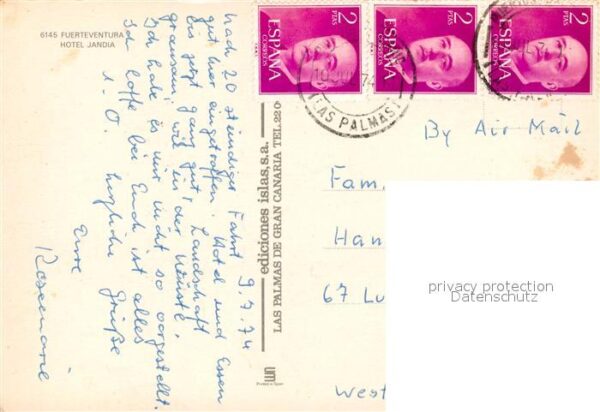 6145 FUERTEVENTURA
HOTEL JANDIA
9.7.74
Nach 20 stündiger Fahrt
gut hier eingetroffen. Hotel und Essen
bis jetzt ganz gut. Landschaft
grausam, wie in der Wüste.
Ich habe es mir nicht so vorgestellt.
Ich hoffe bei Euch ist alles
i. O. herzliche Grüße
Eure
Rosemarie
ediciones islas, s.a.
LAS PALMAS DE GRAN CANARIA TEL. 220
Printed in Spain
2
PTAS
ESPAÑA
CORREOS
2
PTAS
ESPAÑA
CORREOS
2
PTAS
ESPAÑA
CORREOS
(LAS PALMAS)
By Air Mail
Fam.
Han
67 Lu
West
privacy protection
Datenschutz